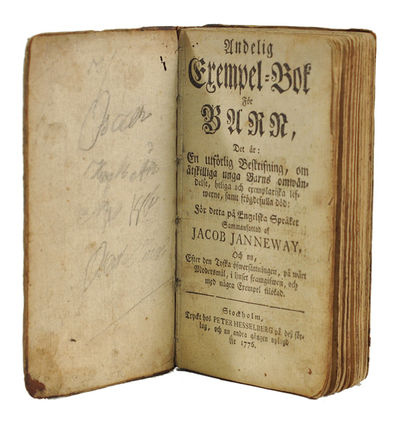 Andelig
Exempel-Bok
För
BARN,
Det är:
En utförlig Beskrifning, om
åtskilliga unga Barns omwän-
delse, heliga och exemplariska lef-
werne, samt frögdefulla död:
För detta på Engelska Språket
Sammanfattad af
JACOB JANNEWAY,
Och nu,
Efter den Tyska öfwersättningen, på wårt
Modersmål, i liuset framgifwen, och
med några Exempel tilökad.
Stockholm,
Tryckt hos PETER HESSELBERG på deß för-
lag, och nu andra gången uplagd
År 1776.